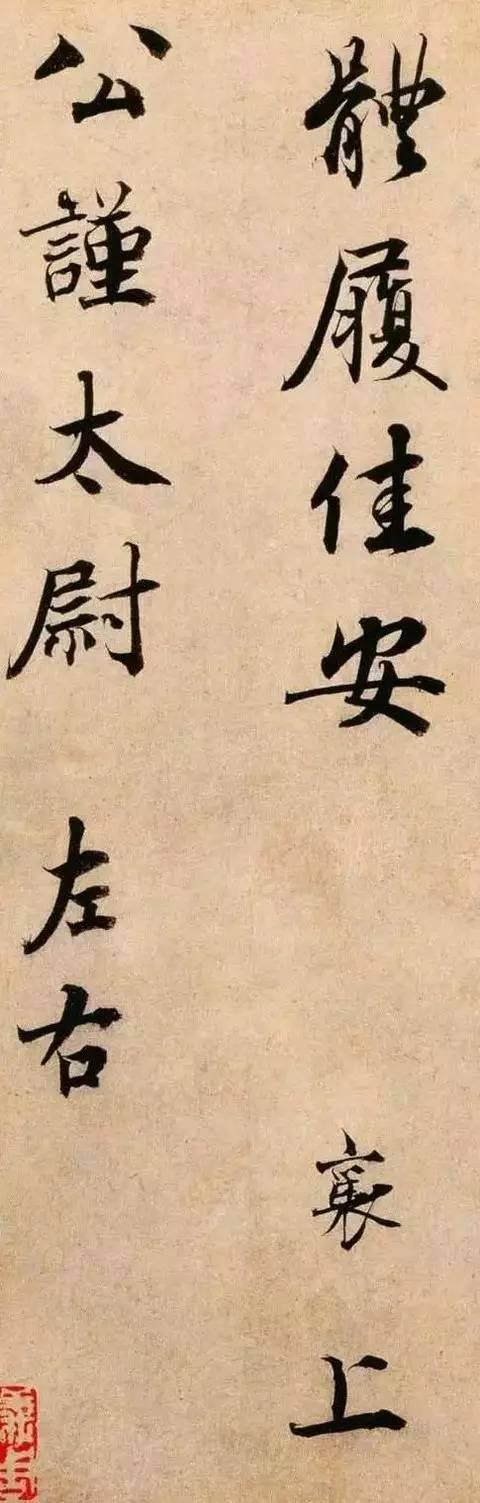 體履佳安 襄上
公謹太尉 左右